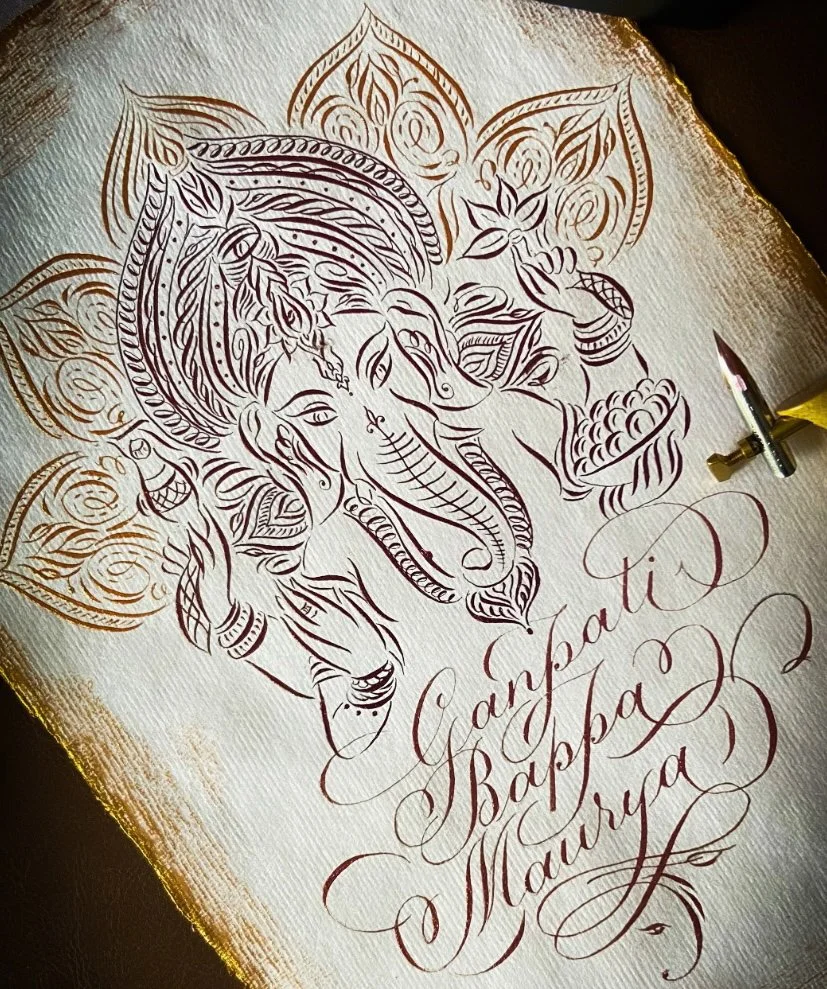 Ganpati
Bappa
Maurya